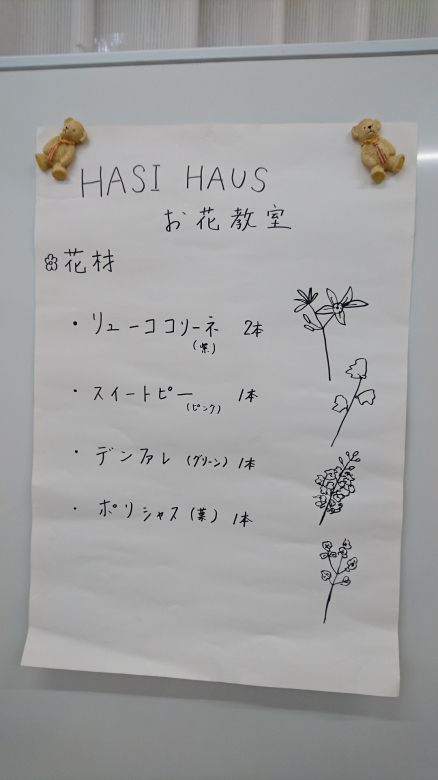 HASI HAUS
お花教室
花材
・リューココリーネ 2本
(紫)
・スイートピー 1本
(ピンク)
・デンファレ(グリーン)1本
・ポリシャス(葉)1本